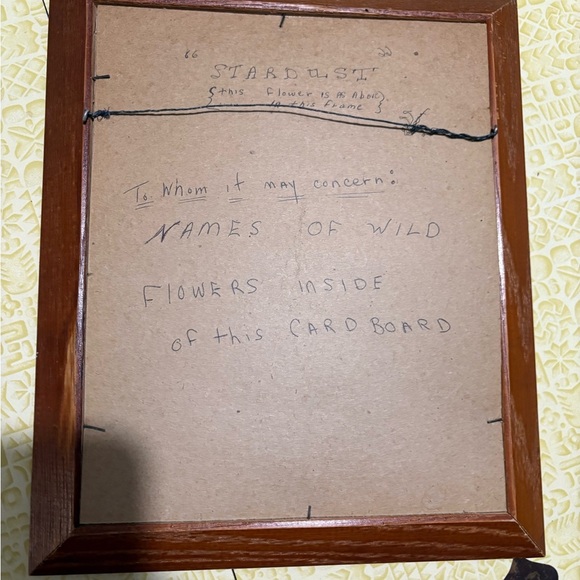 “ ”
STARDUST
{ this Flower is as Above,
in this Frame }
To Whom it may concern:
NAMES OF WILD
FLOWERS INSIDE
OF this CARD BOARD